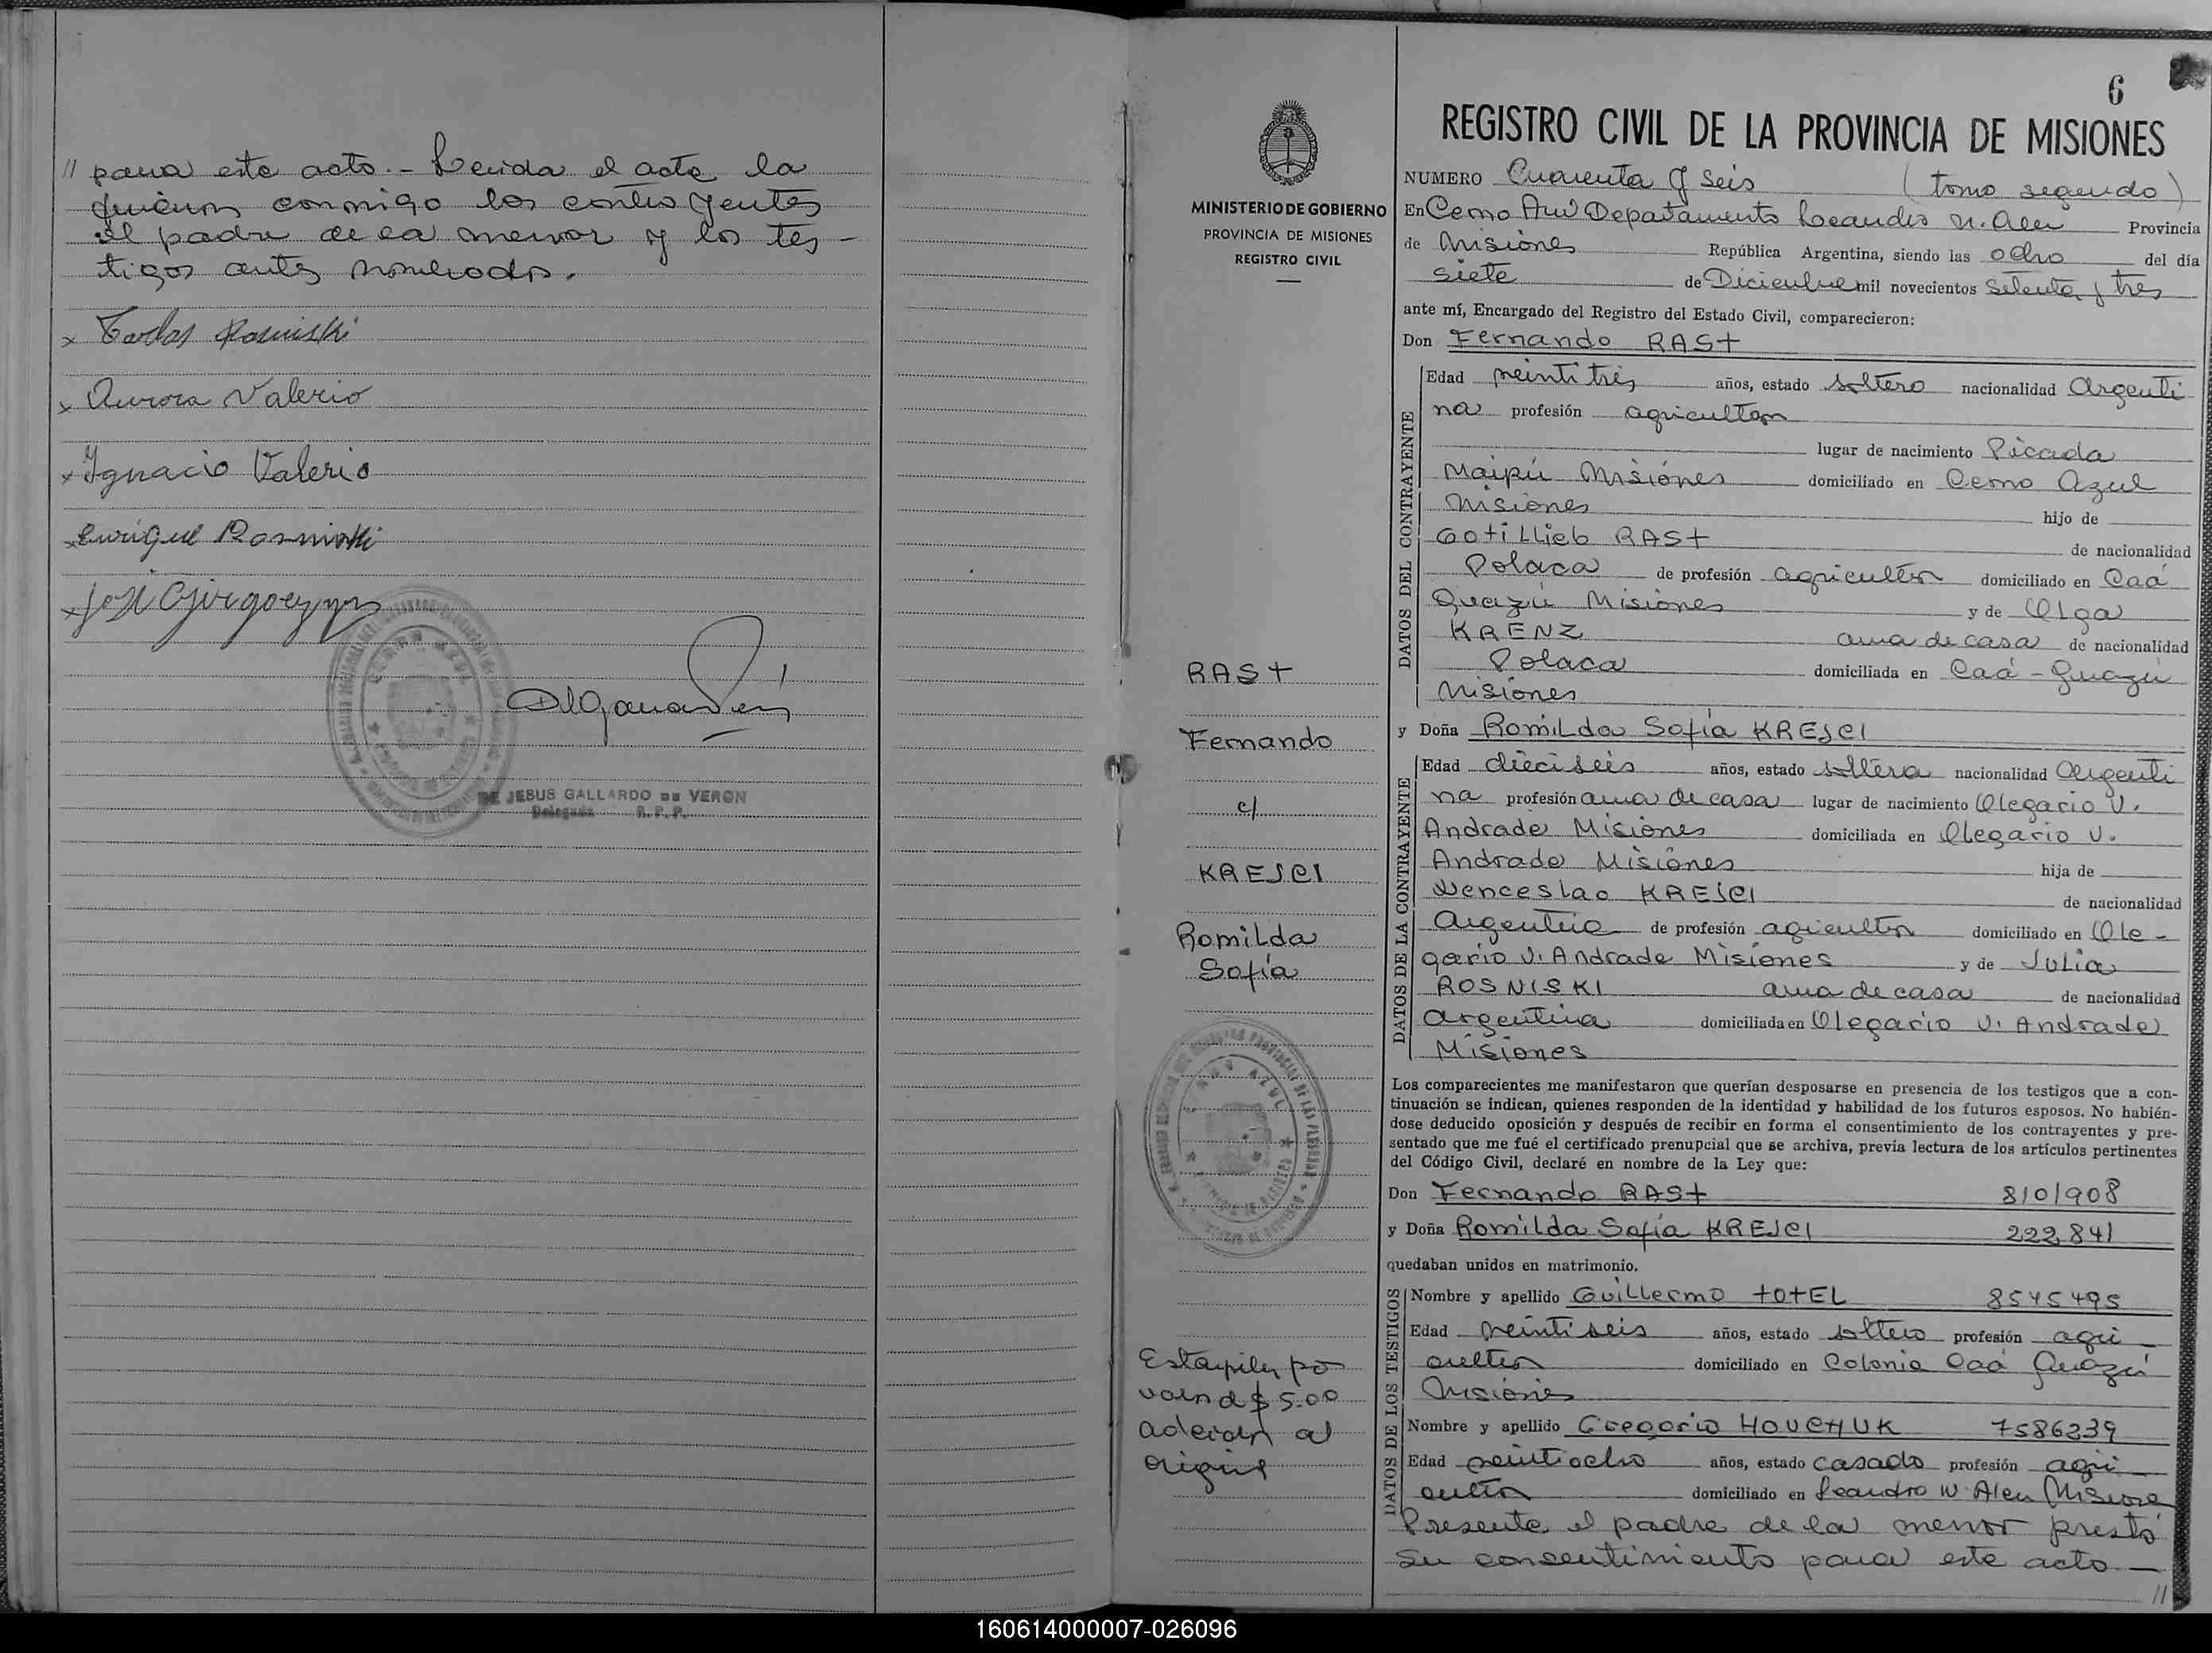 // para este acto.- Leida el acta la
firman conmigo los contrayentes
el padre de la menor y los tes-
tigos antes nombrados.
x Carlos Rosniski
x Aurora Valerio
x Ignacio Valerio
x Enrique Rosniski
x José
DE JESUS GALLARDO DE VERON
Delegada R.P.P.
6
MINISTERIO DE GOBIERNO
PROVINCIA DE MISIONES
REGISTRO CIVIL
RAST
Fernando
c/
KREJCI
Romilda
Sofía
CERRO AZUL
Estampilla por
valor d $ 5.00
adherida al
original
REGISTRO CIVIL DE LA PROVINCIA DE MISIONES
NUMERO Cuarenta y seis (tomo segundo)
En Cerro Azul Departamento Leandro N. Alem Provincia
de Misiones República Argentina, siendo las ocho del día
siete de Diciembre mil novecientos setenta y tres
ante mí, Encargado del Registro del Estado Civil, comparecieron:
Don Fernando RAST
DATOS DEL CONTRAYENTE
Edad veintitrés años, estado soltero nacionalidad Argenti
na profesión agricultor
lugar de nacimiento Picada
Maipú Misiones domiciliado en Cerro Azul
Misiones hijo de
Gotillieb RAST de nacionalidad
Polaca de profesión agricultor domiciliado en Caá
Guazú Misiones y de Olga
KRENZ ama de casa de nacionalidad
Polaca domiciliada en Caá-Guazú
Misiones
y Doña Romilda Sofía KREJCI
DATOS DE LA CONTRAYENTE
Edad dieciseis años, estado soltera nacionalidad Argenti
na profesión ama de casa lugar de nacimiento Olegario V.
Andrade Misiones domiciliada en Olegario V.
Andrade Misiones hija de
Wenceslao KREJCI de nacionalidad
Argentina de profesión agricultor domiciliado en Ole-
gario V. Andrade Misiones y de Julia
ROSNISKI ama de casa de nacionalidad
argentina domiciliada en Olegario V. Andrade
Misiones
Los comparecientes me manifestaron que querían desposarse en presencia de los testigos que a con-
tinuación se indican, quienes responden de la identidad y habilidad de los futuros esposos. No habién-
dose deducido oposición y después de recibir en forma el consentimiento de los contrayentes y pre-
sentado que me fué el certificado prenupcial que se archiva, previa lectura de los artículos pertinentes
del Código Civil, declaré en nombre de la Ley que:
Don Fernando RAST 8101908
y Doña Romilda Sofía KREJCI 222.841
quedaban unidos en matrimonio.
DATOS DE LOS TESTIGOS
Nombre y apellido Guillermo TOTEL 8545495
Edad veintiseis años, estado soltero profesión agri
cultor domiciliado en Colonia Caá Guazú
Misiones
Nombre y apellido Gregorio HOUCHUK 7586239
Edad veintiocho años, estado casado profesión agri
cultor domiciliado en Leandro N. Alem Misiones
Presente el padre de la menor prestó
su consentimiento para este acto.—
//
160614000007-026096